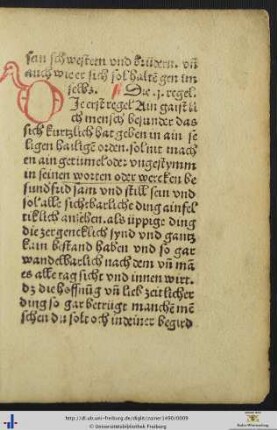 sen schwestern vnd brüdern. vñ
auch wie er sich sol haltē gen im
selbs. Die .j. regel.
Die erst regel Ain gaistli
ch mensch besunder das
sich kurtzlich hat geben in ain se
ligen hailigē orden. sol nit mach
en ain getümel oder vngestymm
in seinen worten oder wercken be
sund fridsam vnd still sein vnd
sol alle sichtbarliche ding ainfel
tiklich ansehen. als üppige ding
die zergencklich synd vnd gantz
kain bestand haben vnd so gar
wandelbarlich nach dem vñ mā
es alle tag sicht vnd innen wirt.
dz die hoffnūg vñ lieb zeitlicher
ding so gar betrügt manchē mē
schen du solt och in deiner begird
http://dl.ub.uni-freiburg.de/diglit/zainer1490/0009
© Universitätsbibliothek Freiburg
Baden-Württemberg